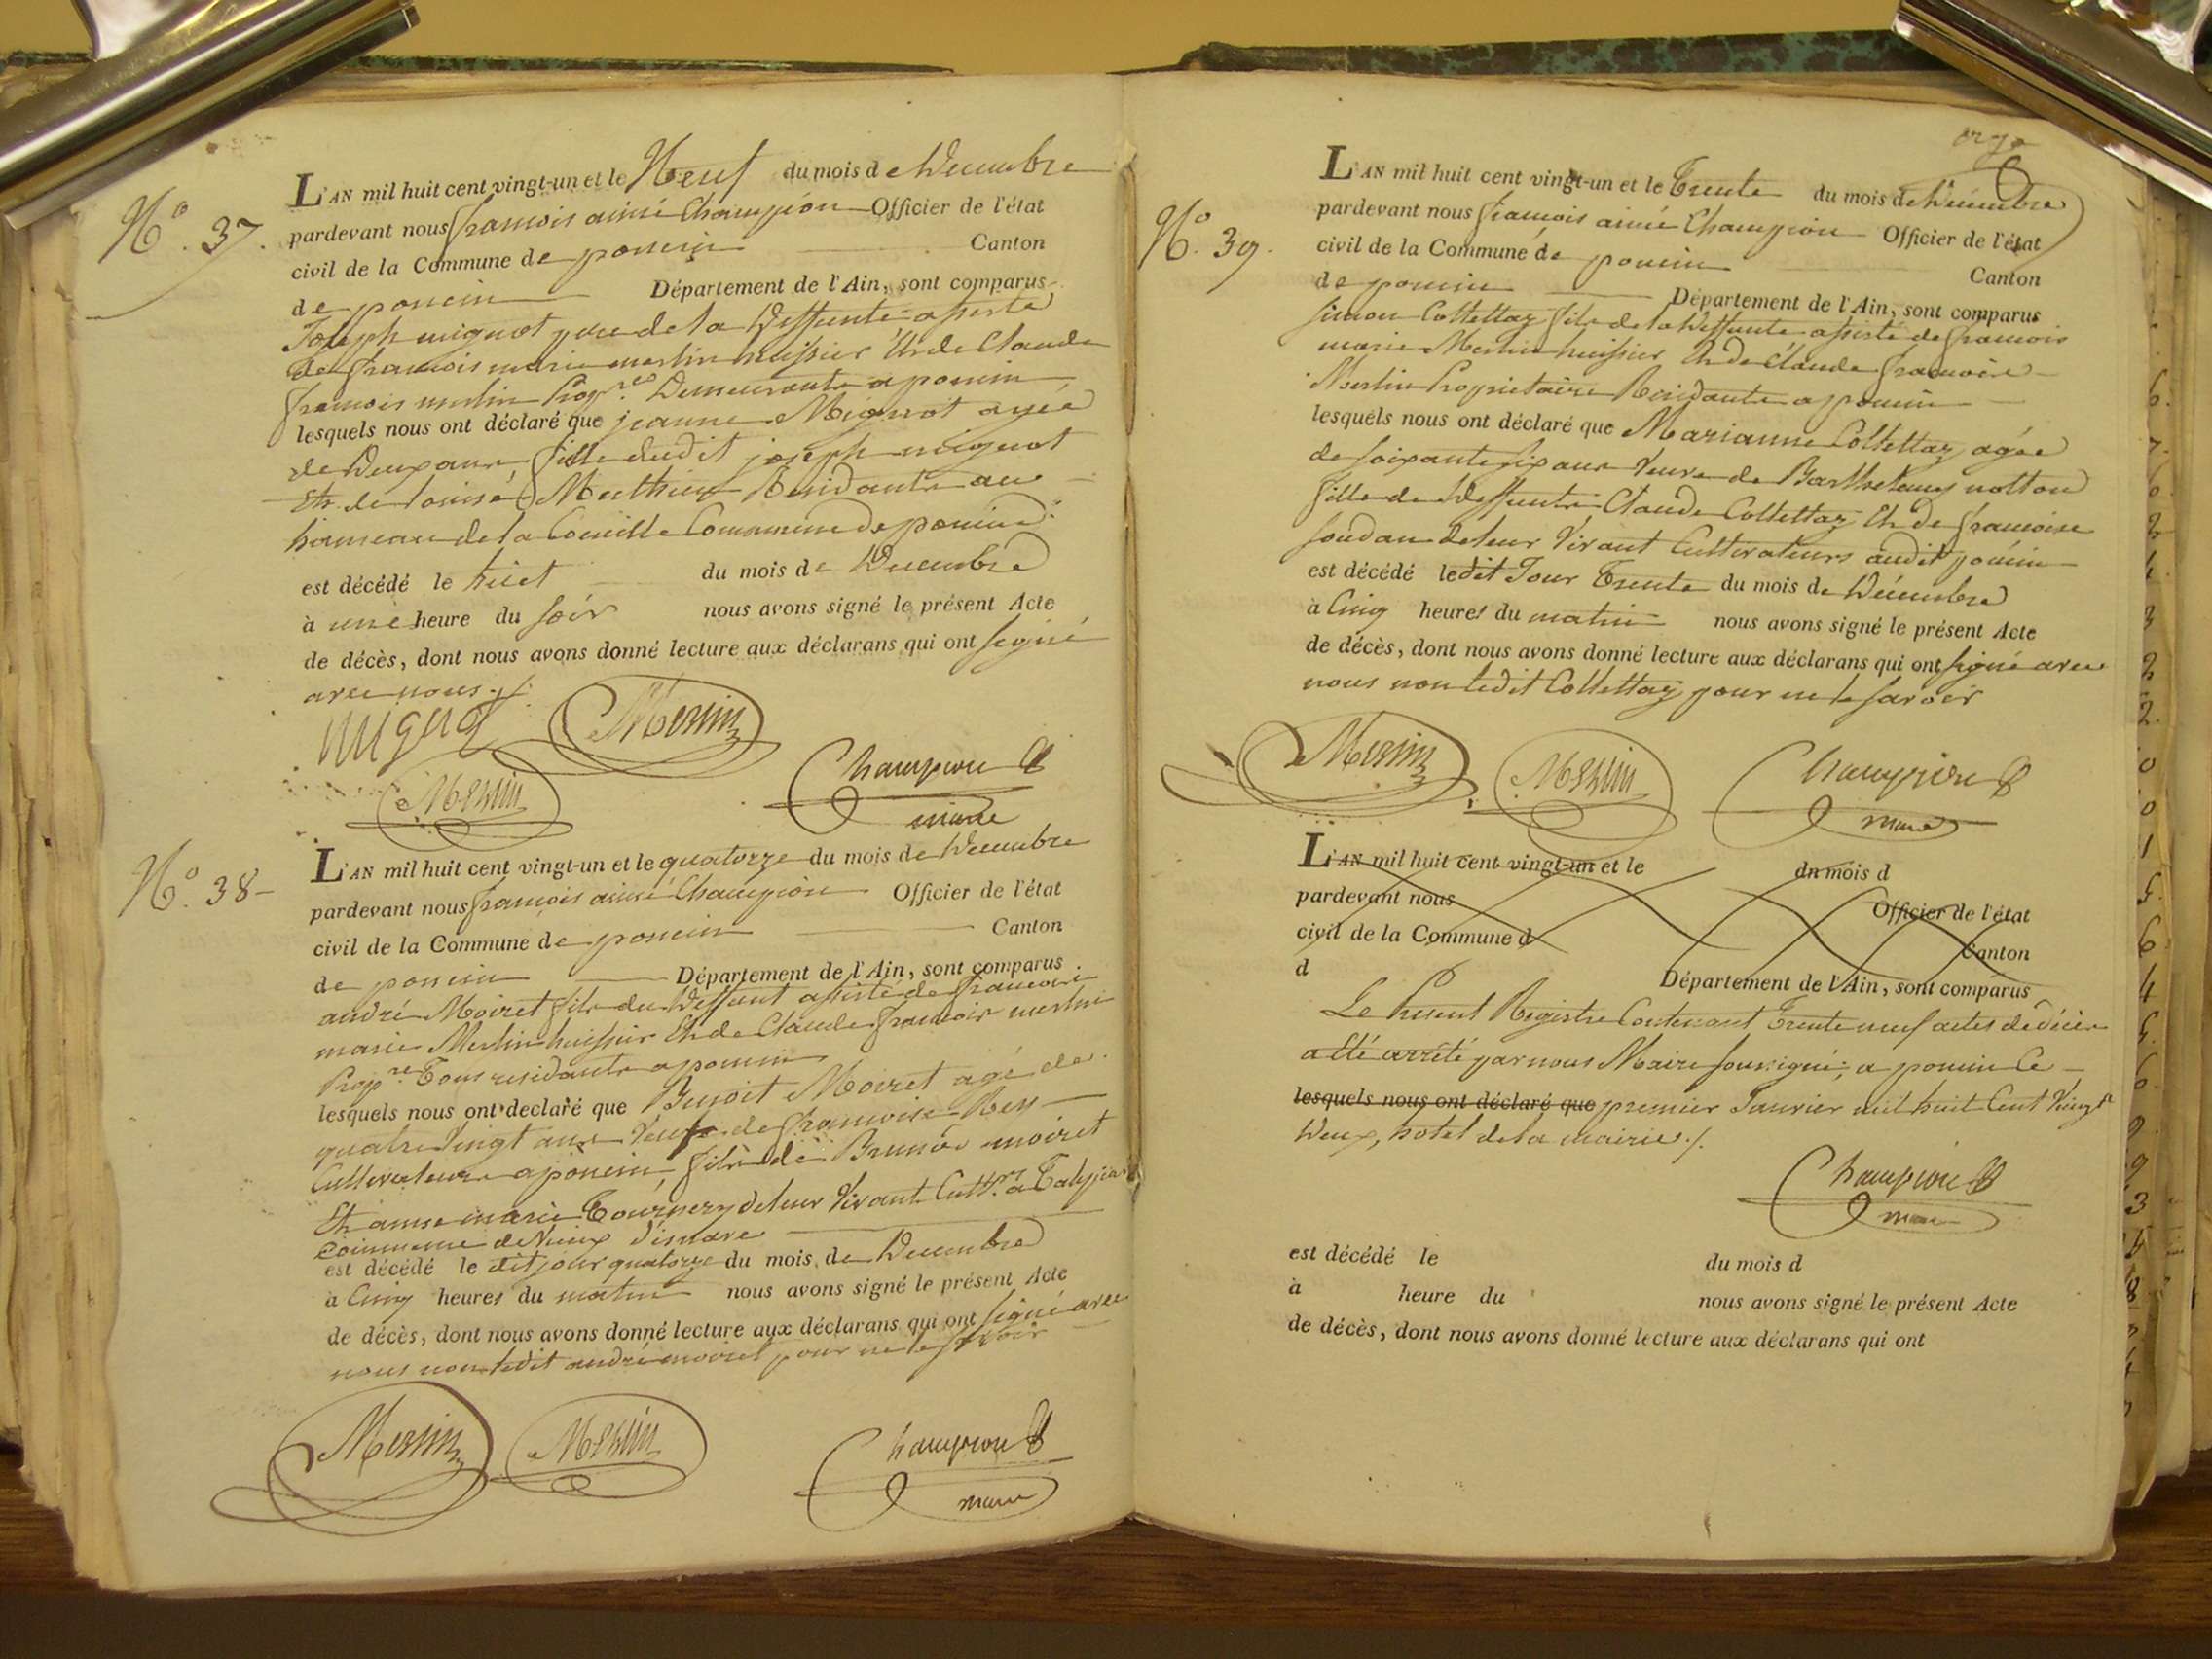 N.º 37.
L'AN mil huit cent vingt-un et le Neuf du mois de Décembre
pardevant nous françois aimé Champion Officier de l'état
civil de la Commune de poncin Canton
de poncin Département de l'Ain, sont comparus
Joseph mignot père de la deffunte assisté
de françois marie merlin huissier Et de Claude
françois merlin Prop.res Demeurants a poncin
lesquels nous ont déclaré que jeanne Mignot agée
de Deux ans, fille dudit joseph mignot
Et de Louise Résidants au
hameau de la Commune de poncin
est décédé le huit du mois de Décembre
à une heure du soir nous avons signé le présent Acte
de décès, dont nous avons donné lecture aux déclarans qui ont signé
avec nous ./.
mignot Merlin
Merlin Champion
maire
N.º 38
L'AN mil huit cent vingt-un et le quatorze du mois de Décembre
pardevant nous françois aimé Champion Officier de l'état
civil de la Commune de poncin Canton
de poncin Département de l'Ain, sont comparus
andré Moiret fils du Deffunt assisté de françois
marie Merlin huissier Et de Claude françois merlin
Prop.re Tous residants a poncin
lesquels nous ont declaré que Benoit Moiret agé de
quatre Vingt ans Veuf de françoise
Cultivateur a poncin, fils de moiret
Et anne marie de leur Vivant Cult.rs a
Commune de Vieux d'isnave
est décédé le dit jour quatorze du mois de Décembre
à Cinq heures du matin nous avons signé le présent Acte
de décès, dont nous avons donné lecture aux déclarans qui ont signé avec
nous non ledit andré moiret pour ne le savoir
Merlin Merlin Champion
maire
N.º 39.
L'AN mil huit cent vingt-un et le Trente du mois de Décembre
pardevant nous françois aimé Champion Officier de l'état
civil de la Commune de poncin Canton
de poncin Département de l'Ain, sont comparus
simon Collettaz fils de la Deffunte assisté de françois
marie Merlin huissier Et de Claude françois
Merlin Propriétaire Résidants a poncin
lesquels nous ont déclaré que Marianne Collettaz agée
de soixante six ans Veuve de Barthelemy
fille de Deffunts Claude Collettaz Et de françoise
de leur Vivant Cultivateurs audit poncin
est décédé ledit Jour Trente du mois de Décembre
à Cinq heures du matin nous avons signé le présent Acte
de décès, dont nous avons donné lecture aux déclarans qui ont signé avec
nous non ledit Collettaz pour ne le savoir
Merlin Merlin Champion
maire
L'AN mil huit cent vingt-un et le du mois d
pardevant nous Officier de l'état
civil de la Commune d Canton
d Département de l'Ain, sont comparus
Le Présent Registre Contenant Trente neuf actes de décès
a Eté arrêté par nous Maire soussigné, a poncin Ce
lesquels nous ont déclaré que premier Janvier mil huit Cent Vingt
Deux, hotel de la mairie ./.
Champion
maire
est décédé le du mois d
à heure du nous avons signé le présent Acte
de décès, dont nous avons donné lecture aux déclarans qui ont